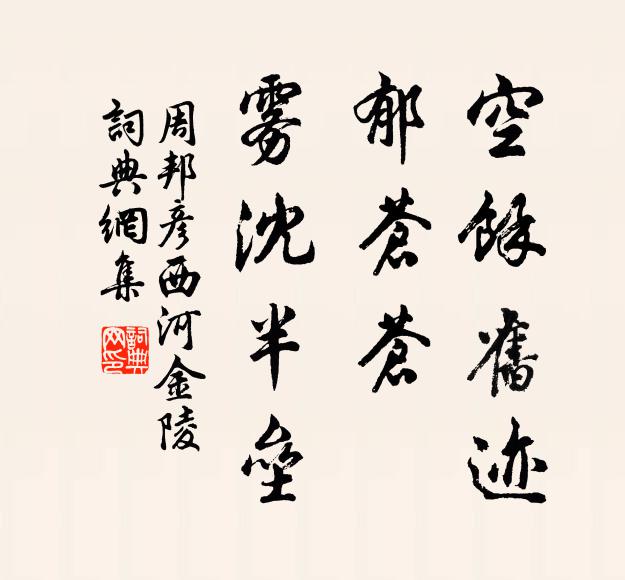 空餘舊迹
郁蒼蒼
雾沈半壘
周邦彦西河金陵
詞典網集
詞典
网印